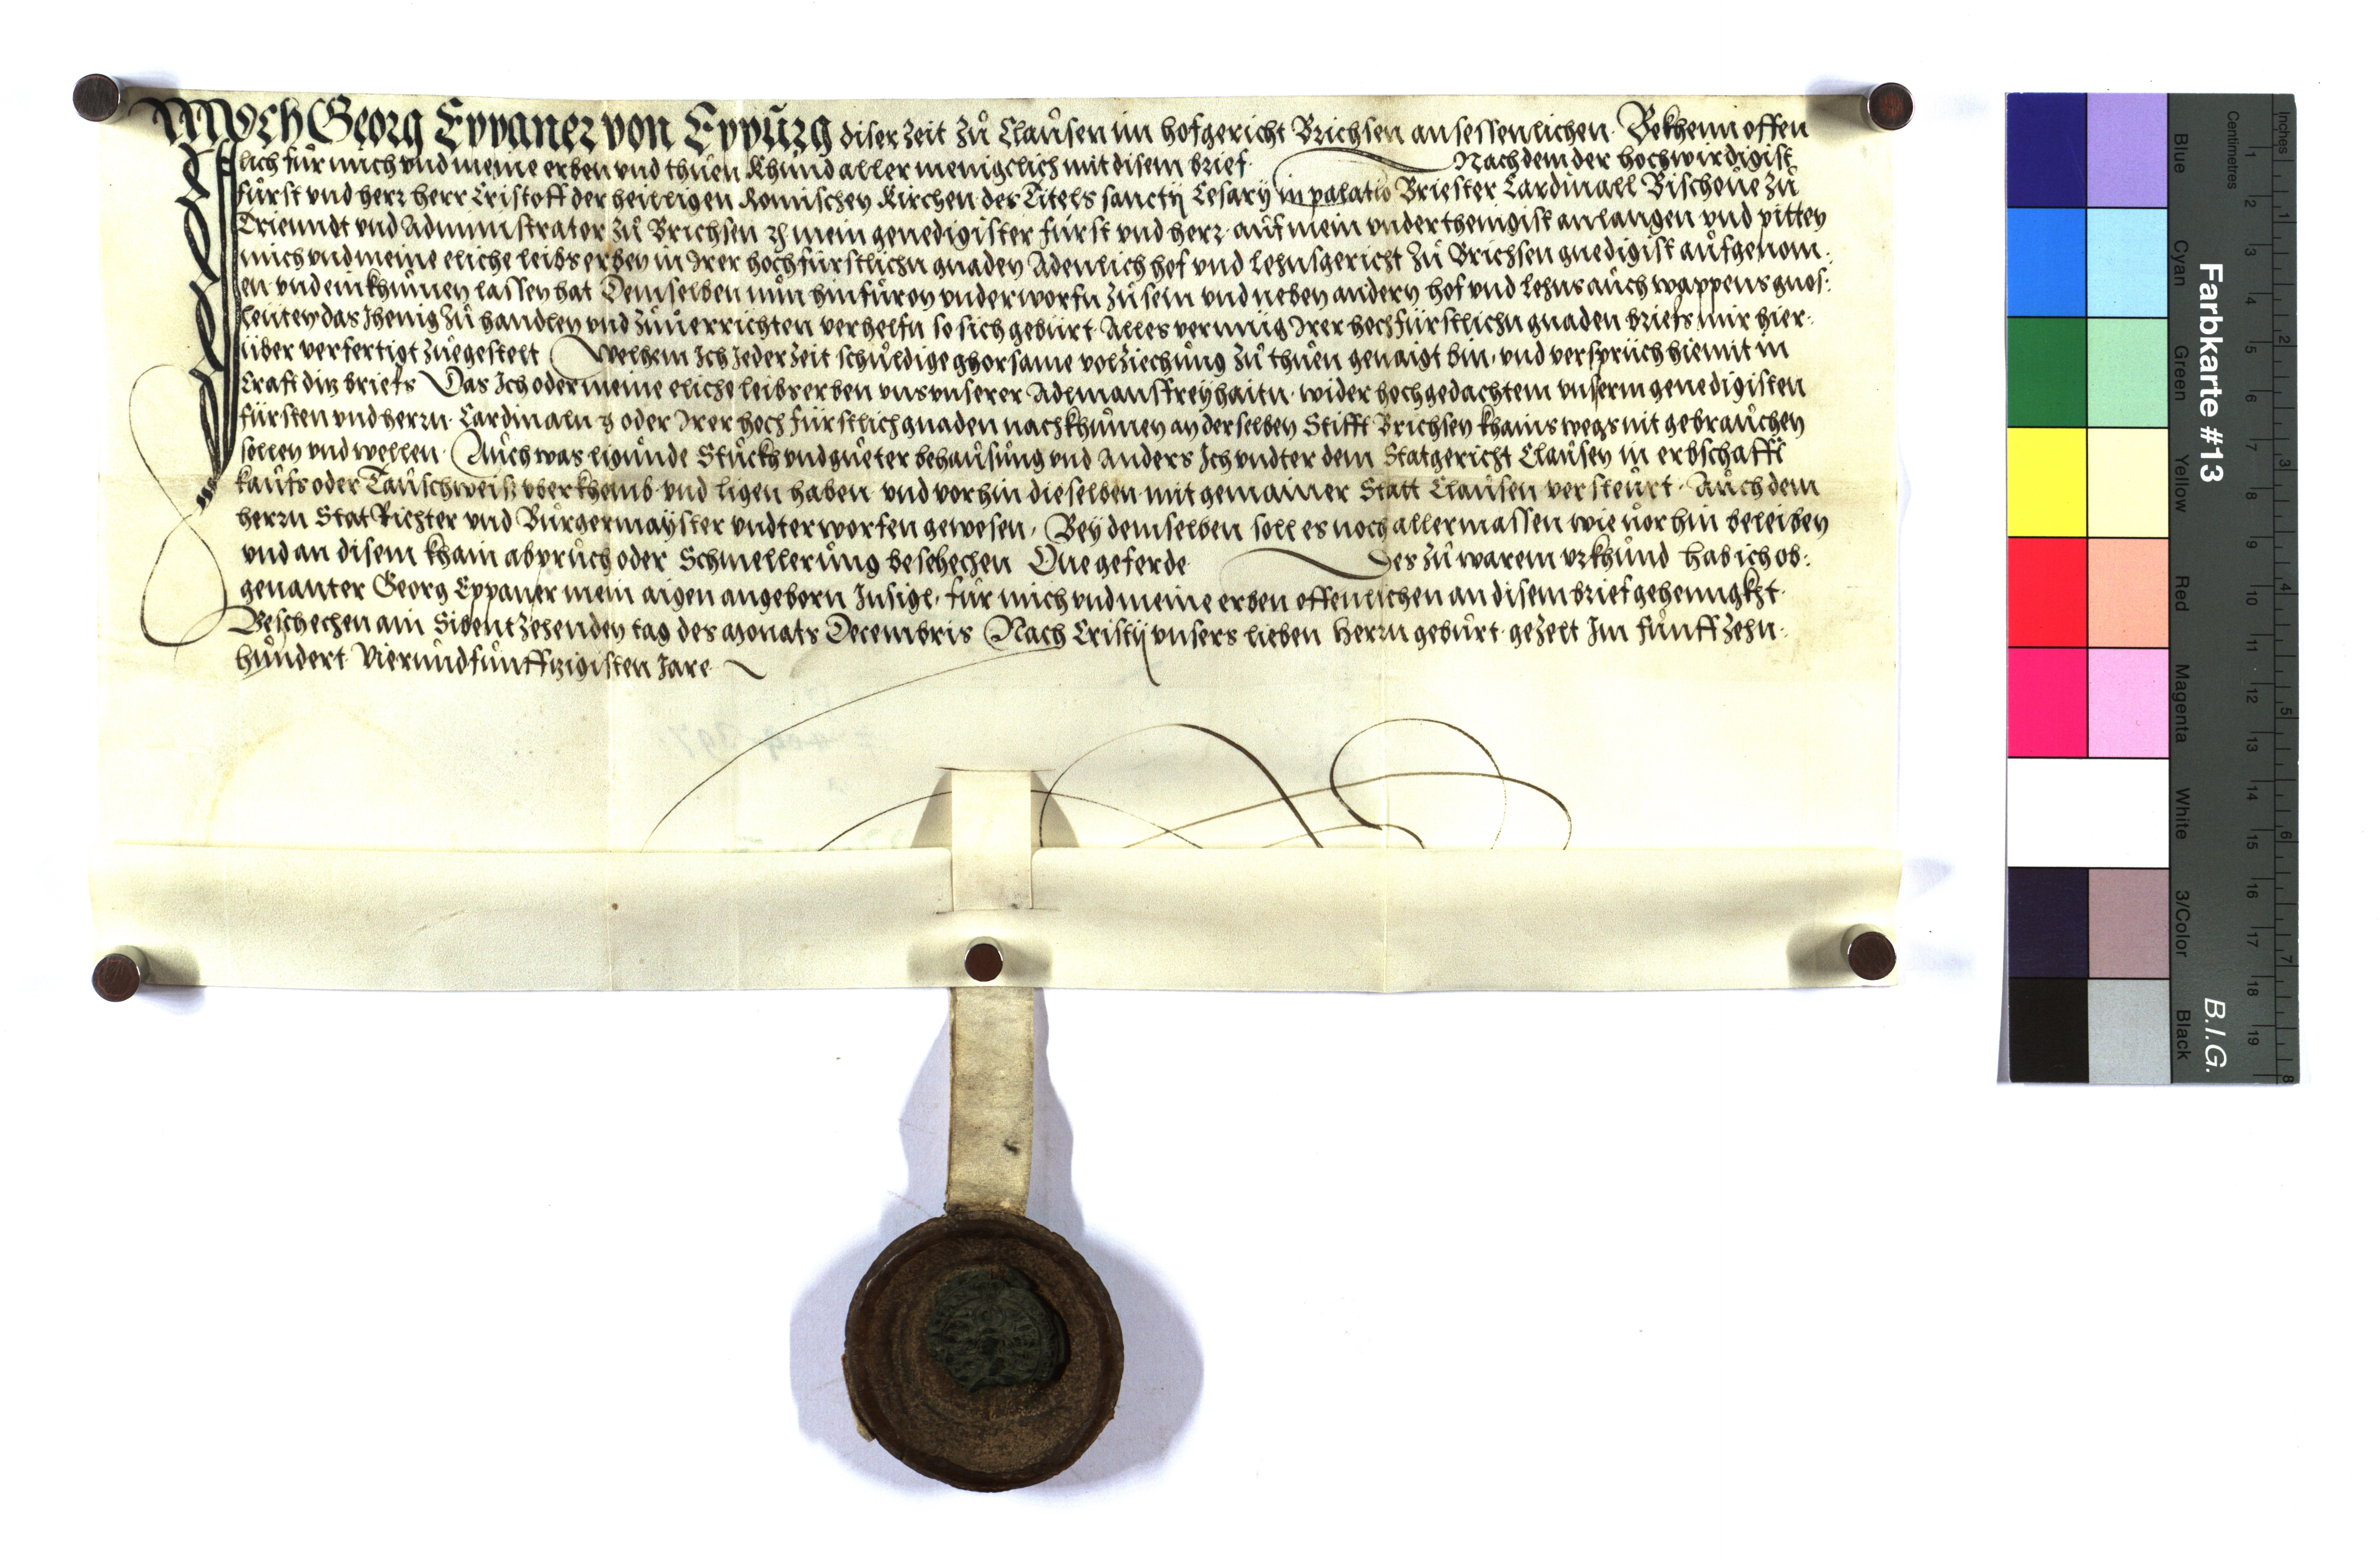 Ich Georg Eppaner von Eppurg diser Zeit zů Clausen im hofgericht Brichsen ansessenlichen. Bekhenn offen
lich für mich vnd meine erben vnd thuen khund allermenigclich mit disem brief. Nachdem der hochwirdigist
fürst vnd herr herr Cristoff der heilligen Romischen Kirchen des Titels sanctij Cesarij in palatio Briester Cardinall Bischove zů
Trienndt vnd Administrator zů Brichsen mein genedigister fürst vnd herr auf mein vnderthenigist anlangen vnd pitten
mich vnd meine eliche leibs erben in Irer hochfürstlichn gnaden Adenlich hof vnd Lehnsgericht zů Brichsen gnedigist aufgenom:
en vnd einkhumen lassen hat Demselben nun hinfüron vnderworfn zů sein vnd neben andern hof vnd Lehns auch wappens gnos:
leuten das Jhenig zů handlen vnd zuuerrichten verhelfn so sich gebürt. Alles vermüg Irer hochfürstlichn gnaden briefs mir hier:
über verfertigt zuegestelt Welhem Ich Jederzeit schuldige ghorsame volziechung zů thuen genaigt bin, vnd versprich hiemit in
Craft ditz briefs Das Ich oder meine eliche leibserben vns vnserer Adlmansfreyhaitn wider hochgedachtem vnserm genedigisten
fürsten vnd herrn Cardinaln oder Irer hochfürstlich gnaden nachkhumen an derselben Stifft Brichsen khains wegs nit gebrauchen
sollen vnd wellen. Auch was ligunde Stuckh vnd gueter behausung vnd anders Ich vndter dem Statgericht Clausen in erbschafft
kaufs oder Tauschweis vberkhomb vnd ligen haben vnd vorhin dieselben mit gemainer Statt Clausen versteurt. Auch dem
herrn StatRichter vnd Burgermayster vndterworfen gewesen, Bey demselben soll es noch allermassen wie vorhin beleiben
vnd an disem khain abpruch oder Schmellerung beschechen One geferde Des zů warem vrkhund hab ich ob:
genanter Georg Eppaner mein aigen angeborn Insigl, für mich vnd meine erben offenlichen an disem brief gehenngkht.
Beschechen am Sibentzehenden tag des Monats Decembris Nach Cristij vnsers lieben Herrn geburt gezelt Im fünffzehn:
hundert Vierundfünffzigisten Jare
Farbkarte #13
B.I.G.
Blue Cyan Green Yellow Red Magenta White 3/Color Black
Centimetres 1 2 3 4 5 6 7 8 9 10 11 12 13 14 15 16 17 18 19
Inches 1 2 3 4 5 6 7 8